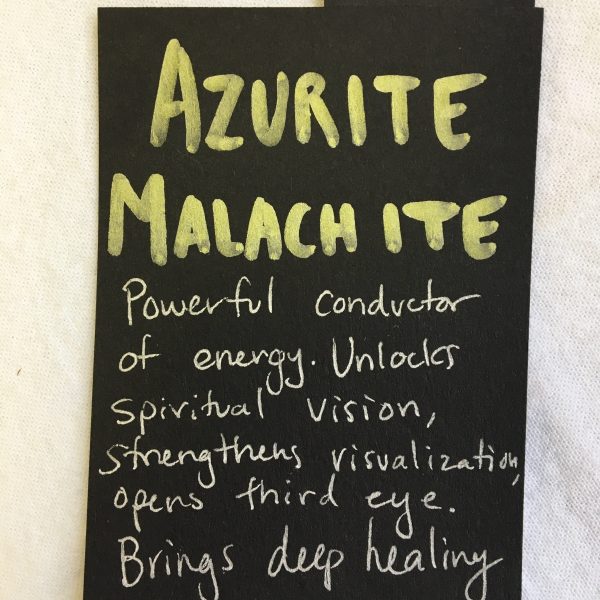 AZURITE
MALACHITE
Powerful conductor
of energy. Unlocks
spiritual vision,
strengthens visualization,
opens third eye.
Brings deep healing